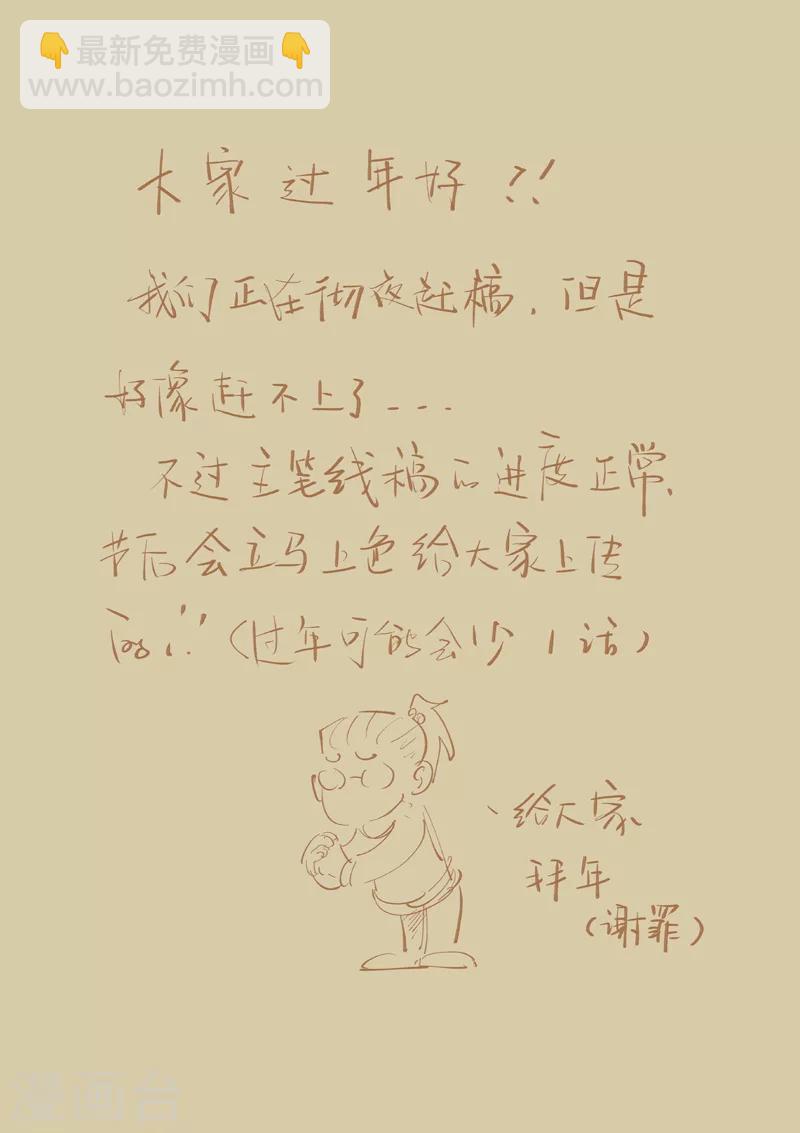 👇最新免费漫画👇
www.baozimh.com
大家过年好!!
我们正在彻夜赶稿,但是
好像赶不上了---
不过主笔线稿的进度正常,
节后会立马上色给大家上传
的!!(过年可能会少1话)
给大家
拜年
(谢罪)
漫画台